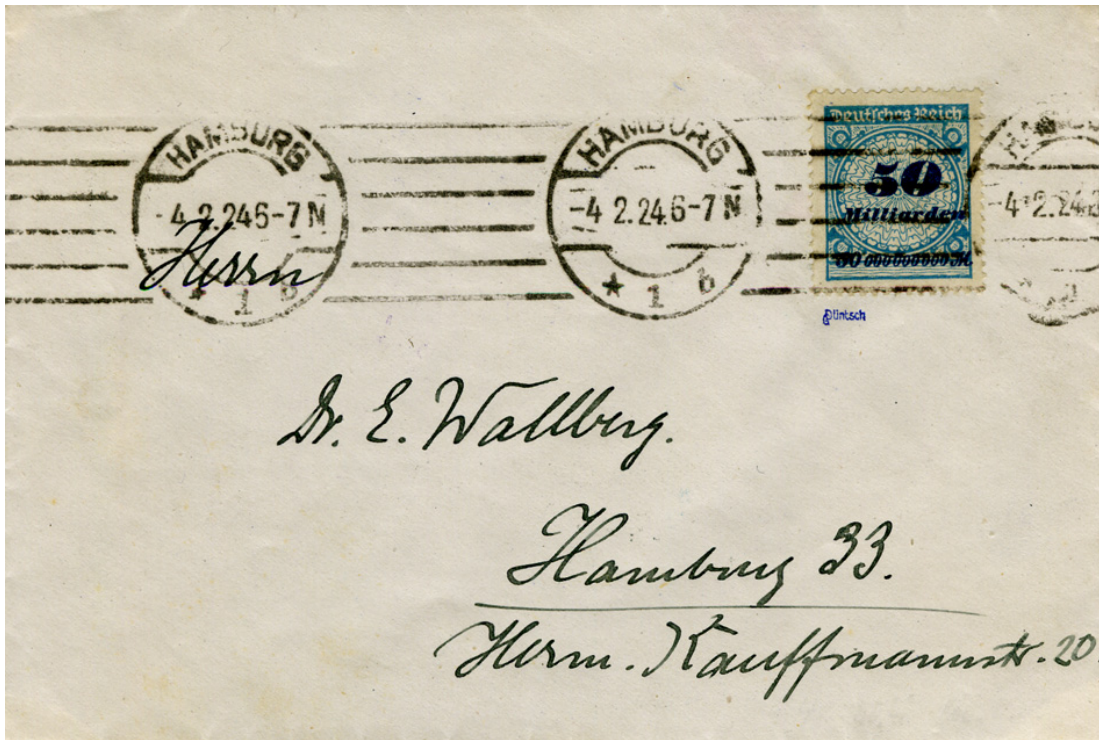 HAMBURG
-4.2.24.6-7 N
★ 1 b
HAMBURG
-4.2.24.6-7 N
★ 1 b
Deutsches Reich
50
Milliarden
50 000000000 M.
-4.2.24.
Herrn
Dr. E. Wallberg.
Hamburg 33.
Herm. Kauffmannstr. 20.